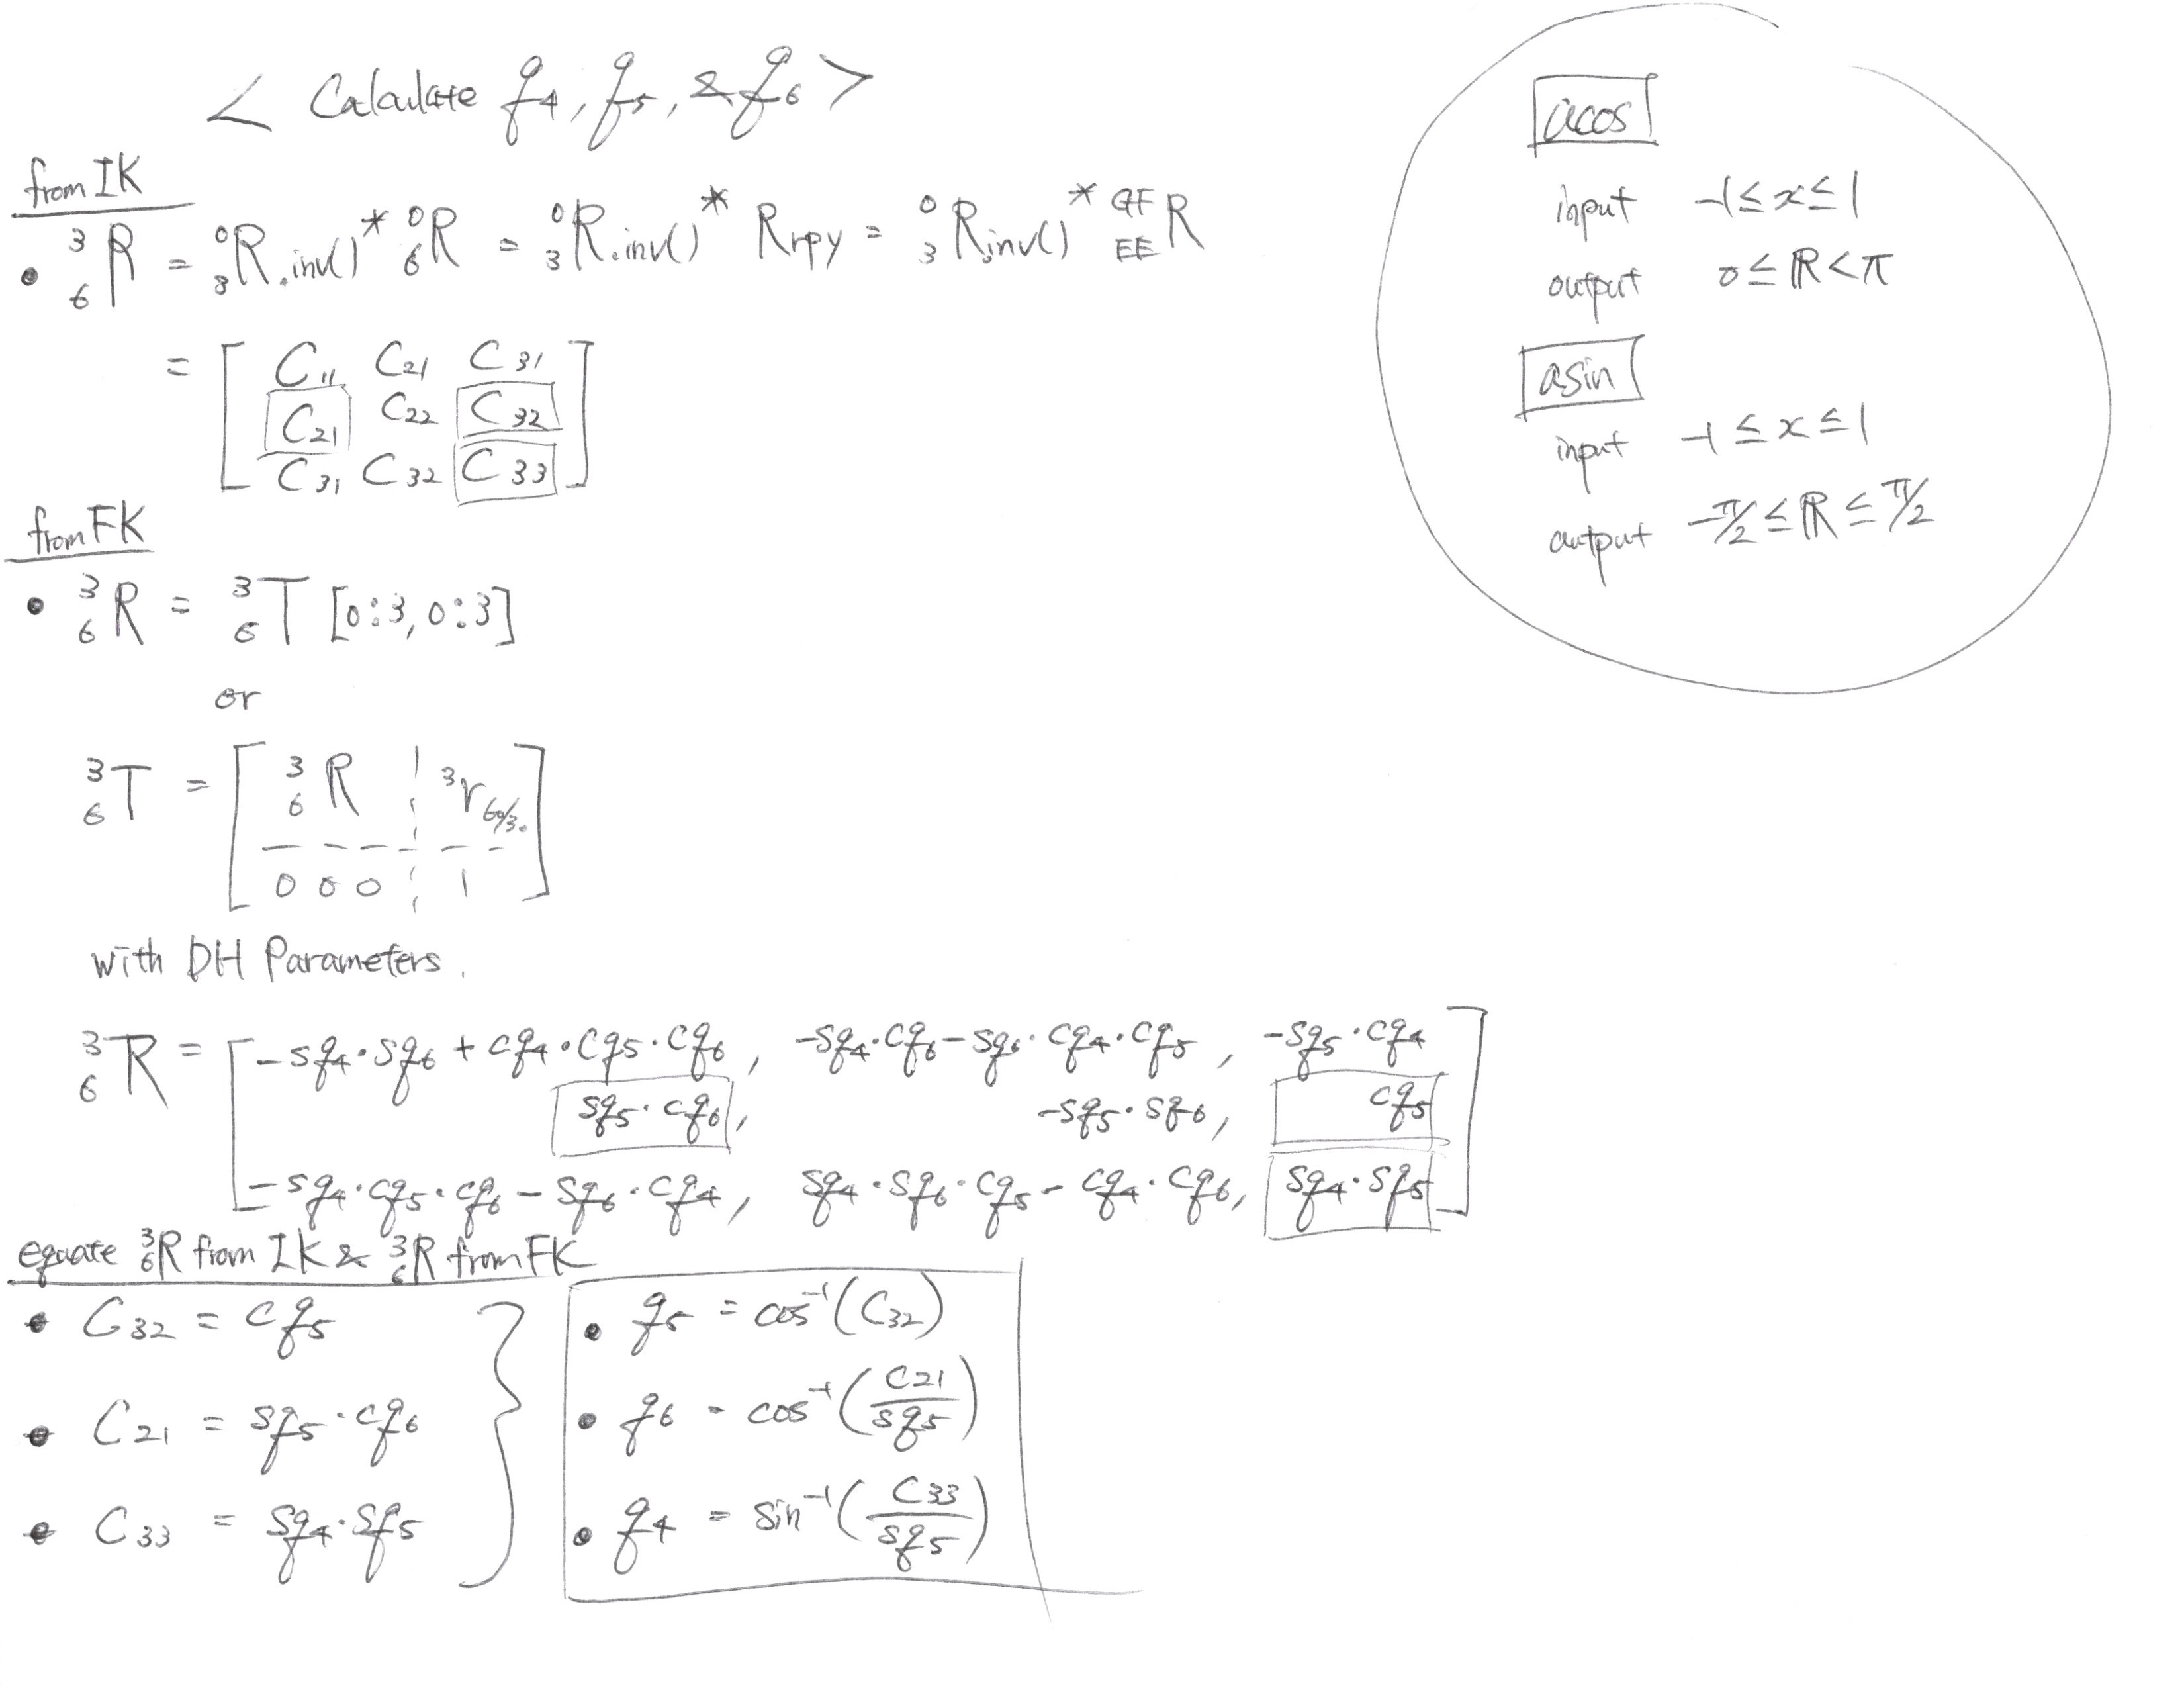 < Calculate q4, q5, & q6 >
from IK
• ³₆R = ⁰₃R.inv() * ⁰₆R = ⁰₃R.inv() * Rrpy = ⁰₃R.inv() * ᴳᶠ_EE R
= [ C11 C21 C31
C21 C22 C32
C31 C32 C33 ]
from FK
• ³₆R = ³₆T [0:3, 0:3]
or
³₆T = [ ³₆R ¦ ³r6o/3o
0 0 0 ¦ 1 ]
with DH Parameters.
³₆R = [ -sq4·sq6 + cq4·cq5·cq6, -sq4·cq6 - sq6·cq4·cq5, -sq5·cq4
sq5·cq6, -sq5·sq6, cq5
-sq4·cq5·cq6 - sq6·cq4, sq4·sq6·cq5 - cq4·cq6, sq4·sq5 ]
equate ³₆R from IK & ³₆R from FK
• C32 = cq5
• C21 = sq5·cq6
• C33 = sq4·sq5
• q5 = cos⁻¹(C32)
• q6 = cos⁻¹(C21/sq5)
• q4 = sin⁻¹(C33/sq5)
acos
input -1≤x≤1
output 0≤ℝ<π
asin
input -1≤x≤1
output -π/2≤ℝ≤π/2